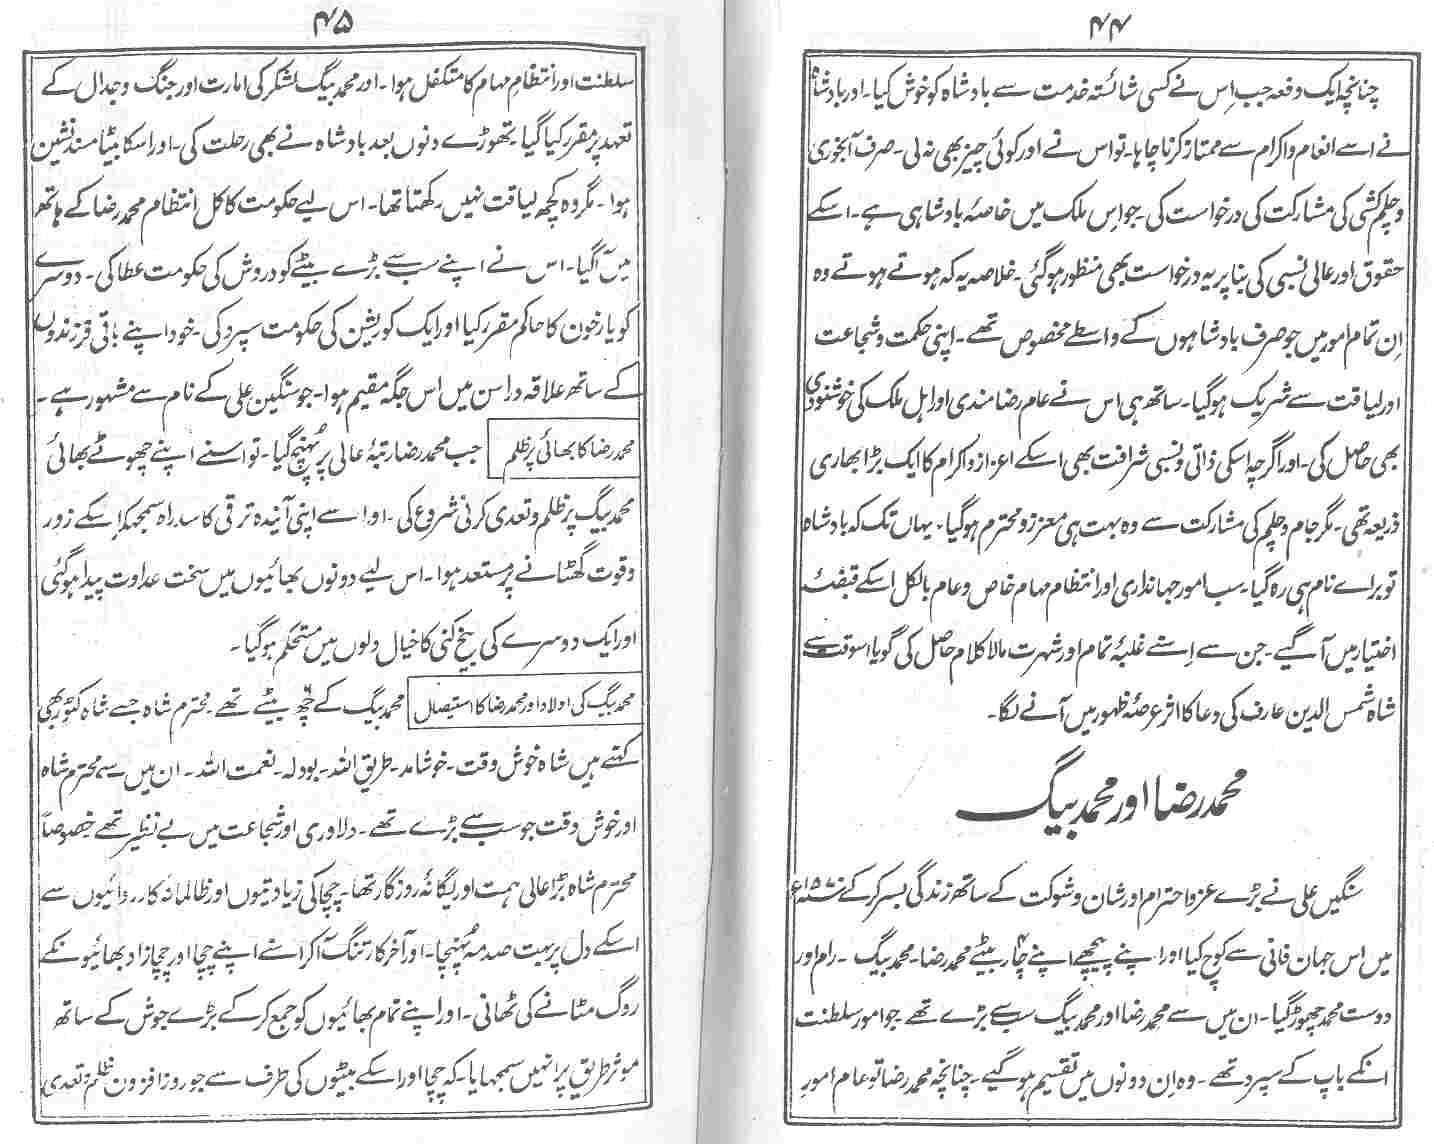 ۴۴
چنانچہ ایک دفعہ جب اِس نے کسی شائستہ خدمت سے بادشاہ کو خوش کیا۔ اور بادشاہ
نے اسے انعام و اکرام سے ممتاز کرنا چاہا۔ تو اس نے اور کوئی چیز بھی نہ لی۔ صرف آبخوری
و چلم کشی کی مشارکت کی درخواست کی۔ جو اِس ملک میں خاصۂ بادشاہی ہے۔ اسکے
حقوق اور عالی نسبی کی بنا پر یہ درخواست بھی منظور ہوگئی۔ خلاصہ یہ کہ ہوتے ہوتے وہ
اِن تمام امور میں جو صرف بادشاہوں کے واسطے مخصوص تھے۔ اپنی حکمت و شجاعت
اور لیاقت سے شریک ہوگیا۔ ساتھ ہی اس نے عام رضامندی اور اہل ملک کی خوشنودی
بھی حاصل کی۔ اور اگرچہ اسکی ذاتی و نسبی شرافت بھی اسکے اعزاز و اکرام کا ایک بڑا بھاری
ذریعہ تھی۔ مگر جام و چلم کی مشارکت سے وہ بہت ہی معزز و محترم ہوگیا۔ یہاں تک کہ بادشاہ
تو برائے نام ہی رہ گیا۔ سب امور جہانداری اور انتظام مہام خاص و عام بالکل اسکے قبضۂ
اختیار میں آ گیے۔ جن سے اِسنے غلبۂ تمام اور شہرت مالاکلام حاصل کی گویا اسوقت سے
شاہ شمس الدین عارف کی دعا کا اثر عرصۂ ظہور میں آنے لگا۔
محمد رضا اور محمد بیگ
سنگین علی نے بڑے عز و احترام اور شان و شوکت کے ساتھ زندگی بسر کر کے ۱۵۷۰ء
میں اس جہان فانی سے کوچ کیا اور اپنے پیچھے اپنے چار بیٹے محمد رضا۔ محمد بیگ۔ رام اور
دوست محمد چھوڑ گیا۔ ان میں سے محمد رضا اور محمد بیگ سب سے بڑے تھے۔ جو امور سلطنت
انکے باپ کے سپرد تھے۔ وہ اِن دونوں میں تقسیم ہو گیے۔ چنانچہ محمد رضا تو عام امورِ
۴۵
سلطنت اور انتظامِ مہام کا متکفل ہوا۔ اور محمد بیگ لشکر کی امارت اور جنگ و جدال کے
تعہد پر مقرر کیا گیا۔ تھوڑے دنوں بعد بادشاہ نے بھی رحلت کی۔ اور اسکا بیٹا مسند نشین
ہوا۔ مگر وہ کچھ لیاقت نہیں رکھتا تھا۔ اس لیے حکومت کا کل انتظام محمد رضا کے ہاتھ
میں آگیا۔ اس نے اپنے سب سے بڑے بیٹے کو دروش کی حکومت عطا کی۔ دوسرے
کو یارخون کا حاکم مقرر کیا اور ایک کو ریشن کی حکومت سپرد کی۔ خود اپنے باقی فرزندوں
کے ساتھ علاقہ دراسن میں اس جگہ مقیم ہوا۔ جو سنگین علی کے نام سے مشہور ہے۔
محمد رضا کا بھائی پر ظلم جب محمد رضا رتبۂ عالی پر پُہنچ گیا۔ تو اسنے اپنے چھوٹے بھائی
محمد بیگ پر ظلم و تعدی کرنی شروع کی۔ اور اسے اپنی آئندہ ترقی کا سد راہ سمجھکر اسکے زور
و قوت گھٹانے پر مستعد ہوا۔ اس لیے دونوں بھائیوں میں سخت عداوت پیدا ہو گئی
اور ایک دوسرے کی بیخ کنی کا خیال دلوں میں مستحکم ہوگیا۔
محمد بیگ کی اولاد اور محمد رضا کا استیصال محمد بیگ کے چھ بیٹے تھے۔ محترم شاہ جسے شاہ کٹور بھی
کہتے ہیں شاہ خوش وقت۔ خوشامد۔ طریق اللہ۔ بودلہ۔ نعمت اللہ۔ ان میں سے محترم شاہ
اور خوش وقت جو سب سے بڑے تھے۔ دلاوری اور شجاعت میں بے نظیر تھے خصوصاً
محترم شاہ بڑا عالی ہمت اور یگانۂ روزگار تھا۔ چچا کی زیادتیوں اور ظالمانہ کارروائیوں سے
اسکے دل پر بہت صدمہ پُہنچا۔ اور آخر کار تنگ آکر اسنے اپنے چچا اور چچازاد بھائیو نکے
روگ مٹانے کی ٹھانی۔ اور اپنے تمام بھائیوں کو جمع کر کے بڑے جوش کے ساتھ
موثر طریق پر انہیں سمجھایا۔ کہ چچا اور اسکے بیٹوں کی طرف سے جو روز افزون ظلم و تعدی